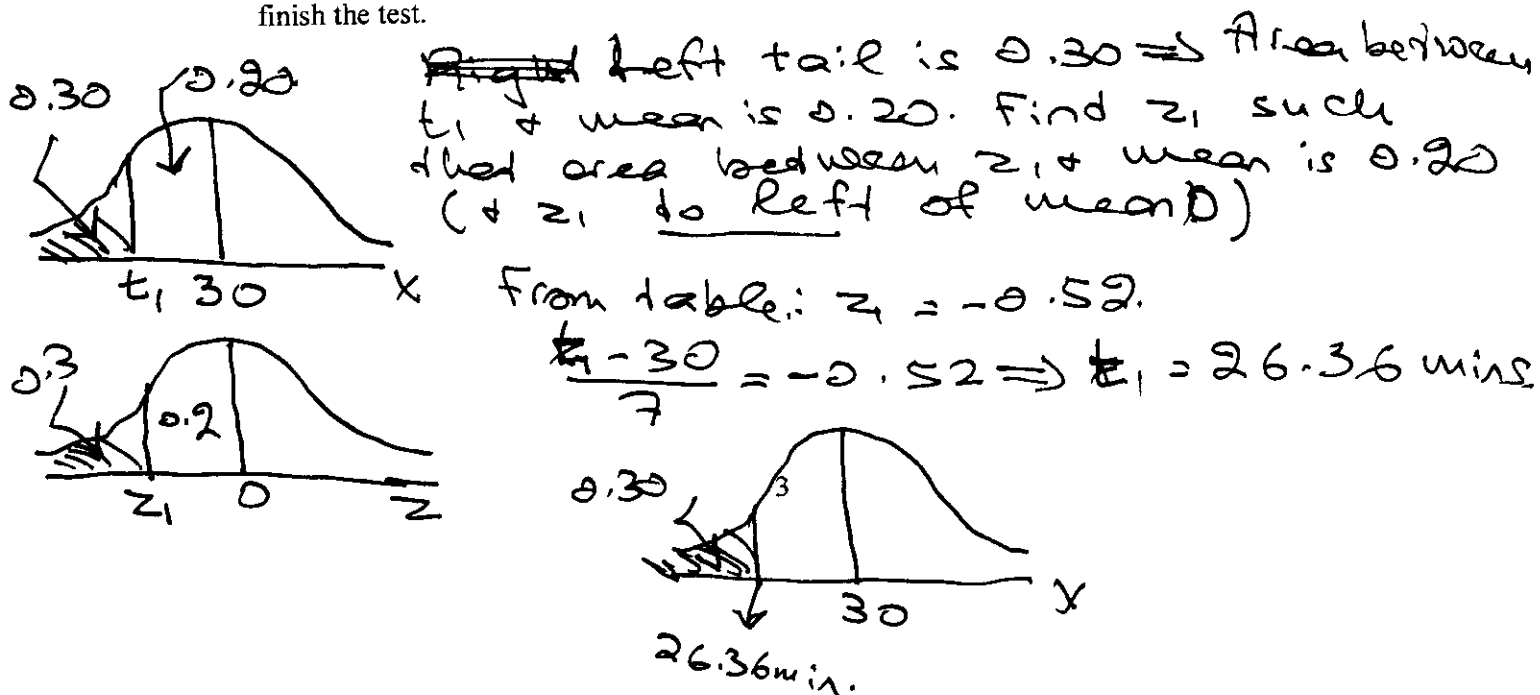 finish the test.
Left tail is 0.30 ⇒ Area between
t₁ & mean is 0.20. Find z₁ such
that area between z₁ & mean is 0.20
(& z₁ to left of mean 0)
0.30 0.20
t₁ 30 X
From table: z₁ = -0.52.
(t₁ - 30)/7 = -0.52 ⇒ t₁ = 26.36 mins.
0.3 0.2
z₁ 0 z
0.30 3
30 X
26.36 min.